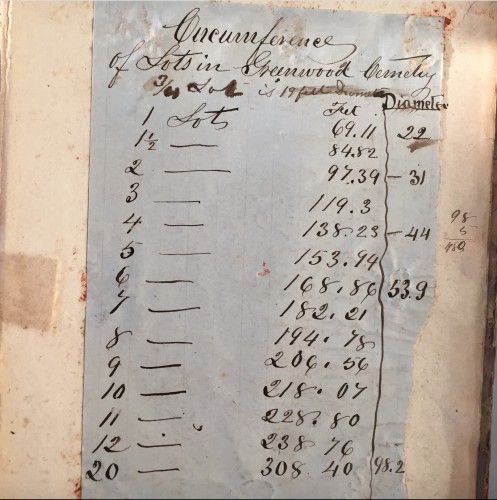 Circumference
of Lots in Greenwood Cemetery
3/4 Lot is 19 feet Diameter
Feet Diameter
1 Lots 69.11 22
1½ — 84.82
2 — 97.39 – 31
3 — 119.3
4 — 138.23 – 44
98
5
5 — 153.94
6 — 168.86 53.9
7 — 182.21
8 — 194.78
9 — 206.56
10 — 218.07
11 — 228.80
12 — 238 76
20 — 308 40 98.2